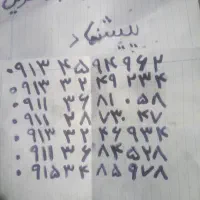 پیشنهاد
۰۹۱۳ ۴۵۹۴۹۶۲
۰۹۱۳ ۲۴۹ ۲۳۴
۰۹۱۱ ۳۶ ۸۱ ۰۵۸
۰۹۱۱ ۳۸ ۷۳۰ ۴۷
۰۹۱۳ ۳۲ ۴۶ ۹۳۴
۰۹۱۱ ۳۶ ۸۴۵۲۸
۰۹۱۵۳۴ ۸۵۹۷۸